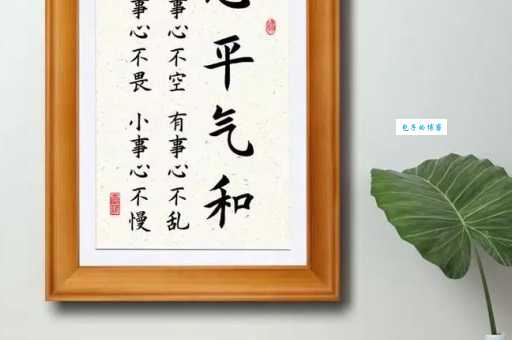 心平气和
事心不空 有事心不乱
事心不畏 小事心不慢
包子的博客